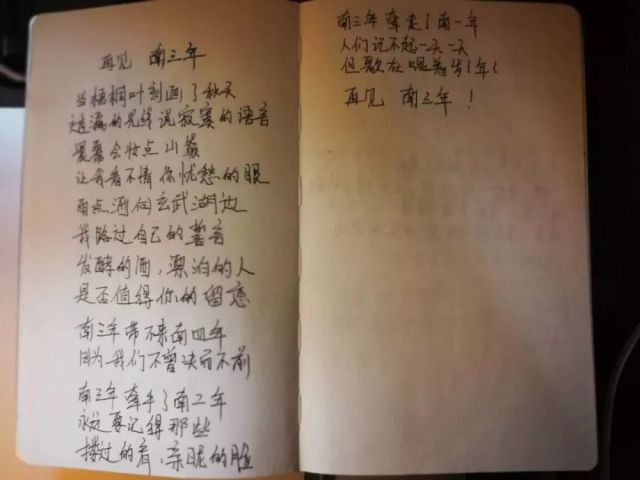 再见 南三年
当梧桐叶刻画了秋天
透漏的光线说寂寞的语言
晨幕会妆点山巅
让我看不清你忧愁的眼
雨点洒向玄武湖边
我路过自己的誓言
发酵的酒，漂泊的人
是否值得你的留恋
南三年带不来南四年
因为我们不曾决而不前
南三年牵手了南二年
永远要记得那些
搂过的肩，亲昵的脸
南三年牵走了南一年
人们记不起一天一天
但歌在唱着岁岁年年
再见 南三年！